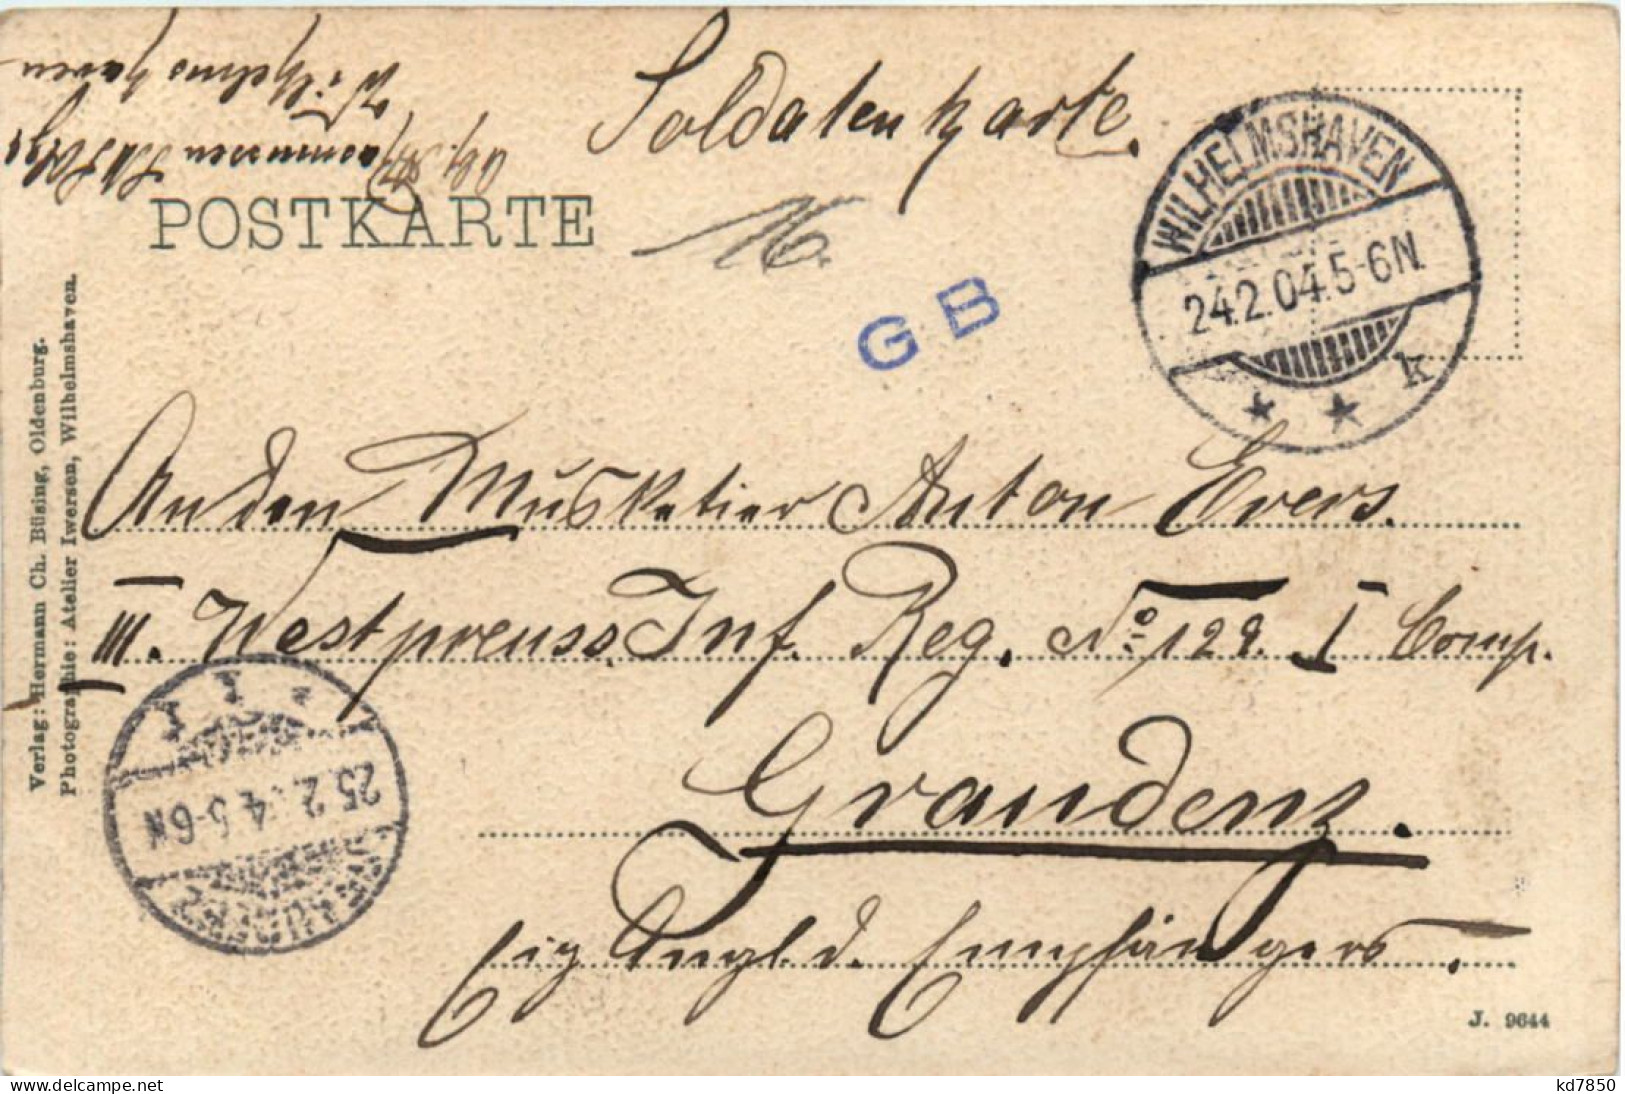 Soldatenkarte.
Wilhelmshaven
Abs. Asmussen S.M.S.
POSTKARTE
16.
G B
WILHELMSHAVEN
24.2.04.5-6N.
* * k
Verlag: Hermann Ch. Büsing, Oldenburg.
Photographie: Atelier Iwersen, Wilhelmshaven.
An den Musketier Anton Evers.
III. Westpreuss. Inf. Reg. No. 129. I Comp.
Graudenz.
Eig. Angl. d. Empfängers.
25.2. 4 5-6N
GRAUDENZ
J. 9644
kd7850